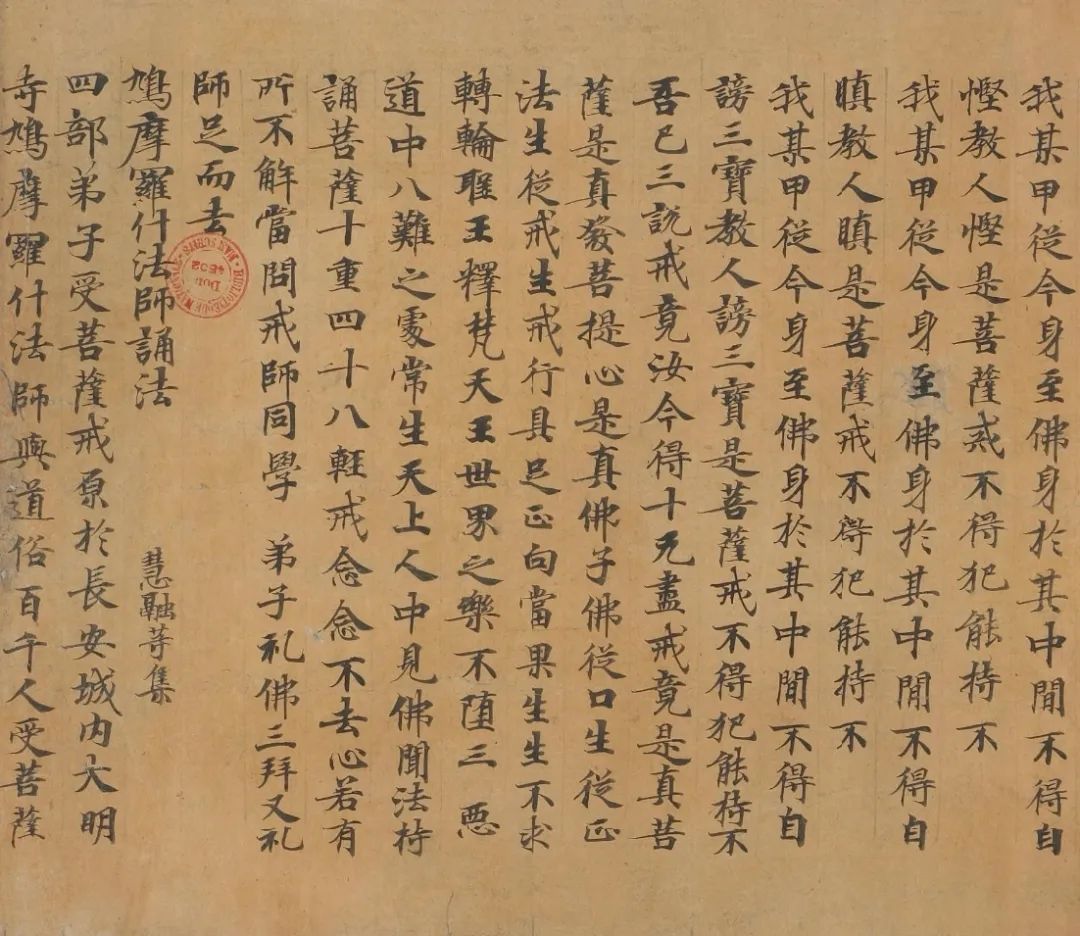 我某甲従今身至佛身於其中間不得自
慳教人慳是菩薩戒不得犯能持不
我某甲従今身至佛身於其中間不得自
瞋教人瞋是菩薩戒不得犯能持不
我某甲従今身至佛身於其中間不得自
謗三寶教人謗三寶是菩薩戒不得犯能持不
吾已三説戒竟汝今得十无盡戒竟是真菩
薩是真發菩提心是真佛子佛従口生従正
法生従戒生戒行具足正向當果生生不求
轉輪聖王釋梵天王世界之樂不墮三惡
道中八難之處常生天上人中見佛聞法持
誦菩薩十重四十八輕戒念念不去心若有
所不解當問戒師同學 弟子礼佛三拜又礼
師足而去
鳩摩羅什法師誦法
慧融等集
四部弟子受菩薩戒原於長安城内大明
寺鳩摩羅什法師與道俗百千人受菩薩